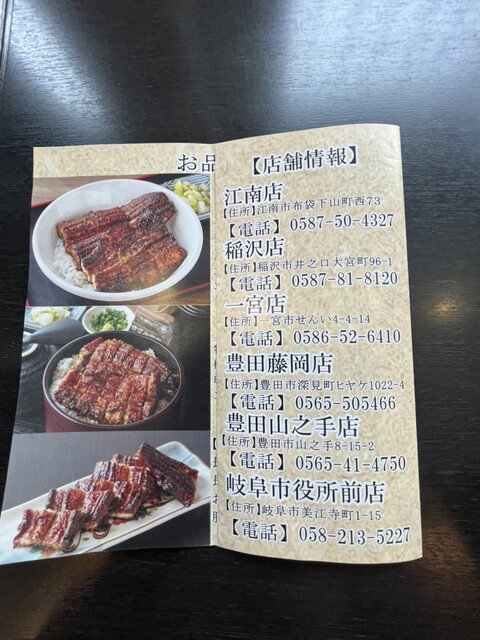 お品
【店舗情報】
江南店
【住所】江南市布袋下山町西73
【電話】 0587-50-4327
稲沢店
【住所】稲沢市井之口大宮町96-1
【電話】 0587-81-8120
一宮店
【住所】一宮市せんい4-4-14
【電話】 0586-52-6410
豊田藤岡店
【住所】豊田市深見町ヒヤケ1022-4
【電話】 0565-505466
豊田山之手店
【住所】豊田市山之手8-15-2
【電話】 0565-41-4750
岐阜市役所前店
【住所】岐阜市美江寺町1-15
【電話】 058-213-5227